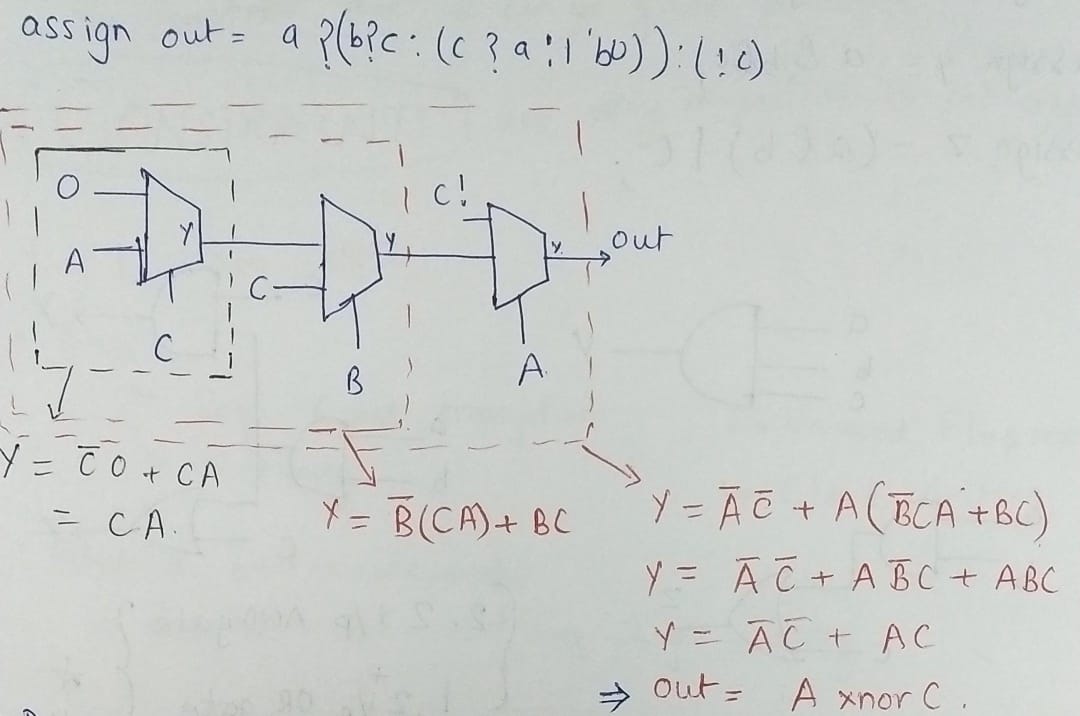 assign out = a ?(b?c : (c ? a : 1'b0)) : (!c)
0
A
Y
C
C
Y
B
C!
Y
A.
out
Y = C̅ 0 + CA
= CA.
Y = B̅(CA) + BC
Y = A̅ C̅ + A(B̅CA + BC)
Y = A̅ C̅ + A B̅ C + ABC
Y = A̅C̅ + AC
⇒ out = A xnor C.